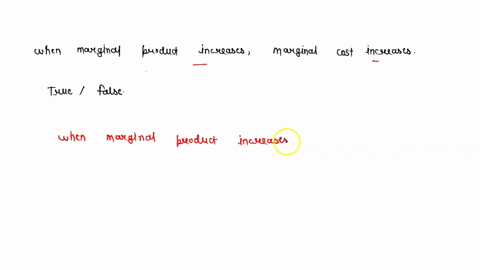 when marginal product increases, marginal cost increases.
True / false.
when marginal product increases